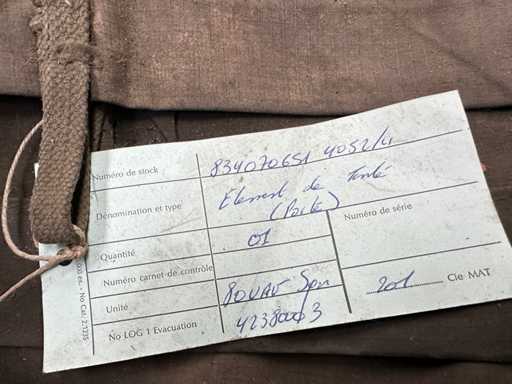 Numéro de stock 834070651 4052/4
Dénomination et type Element de Tente
(Porte)
Quantité 01
Numéro de série
Numéro carnet de contrôle
Unité
201 Cie MAT
No LOG 1 Evacuation 4238003